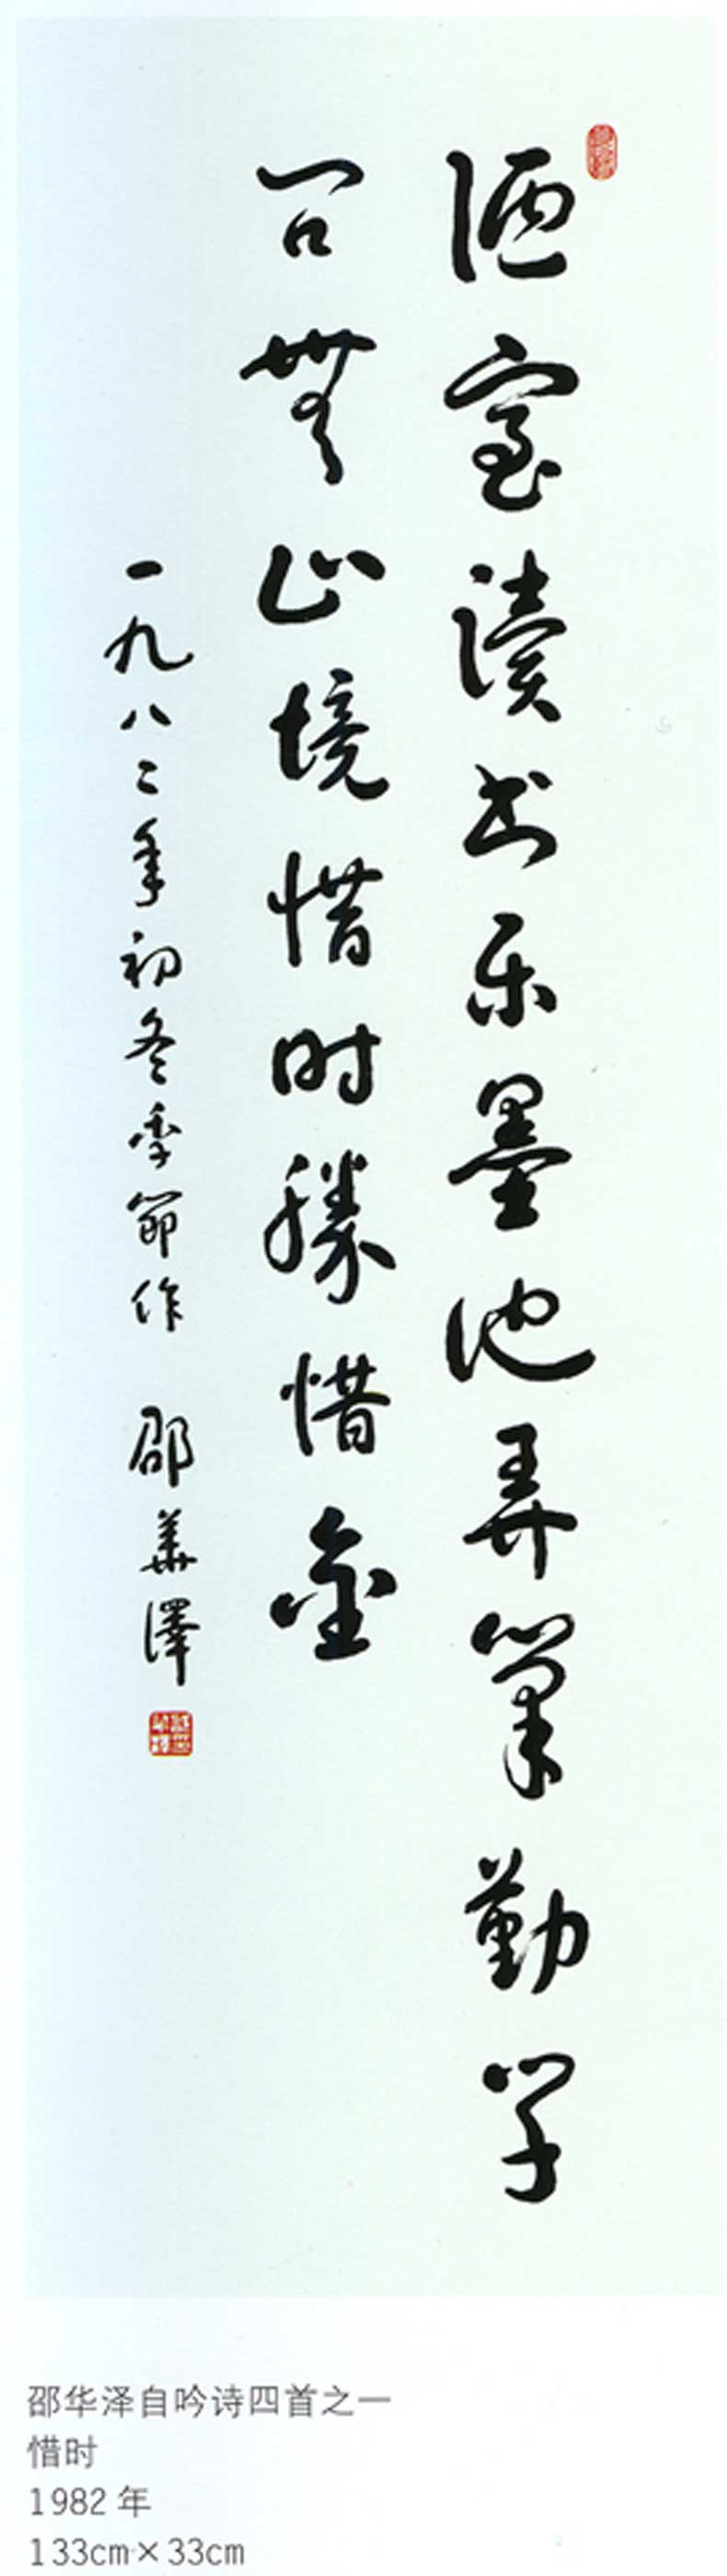 陋室读书乐墨池弄筆勤学
问無止境惜时勝惜金
一九八二年初冬季節作 邵華澤
邵华泽自吟诗四首之一
惜时
1982年
133cm×33cm